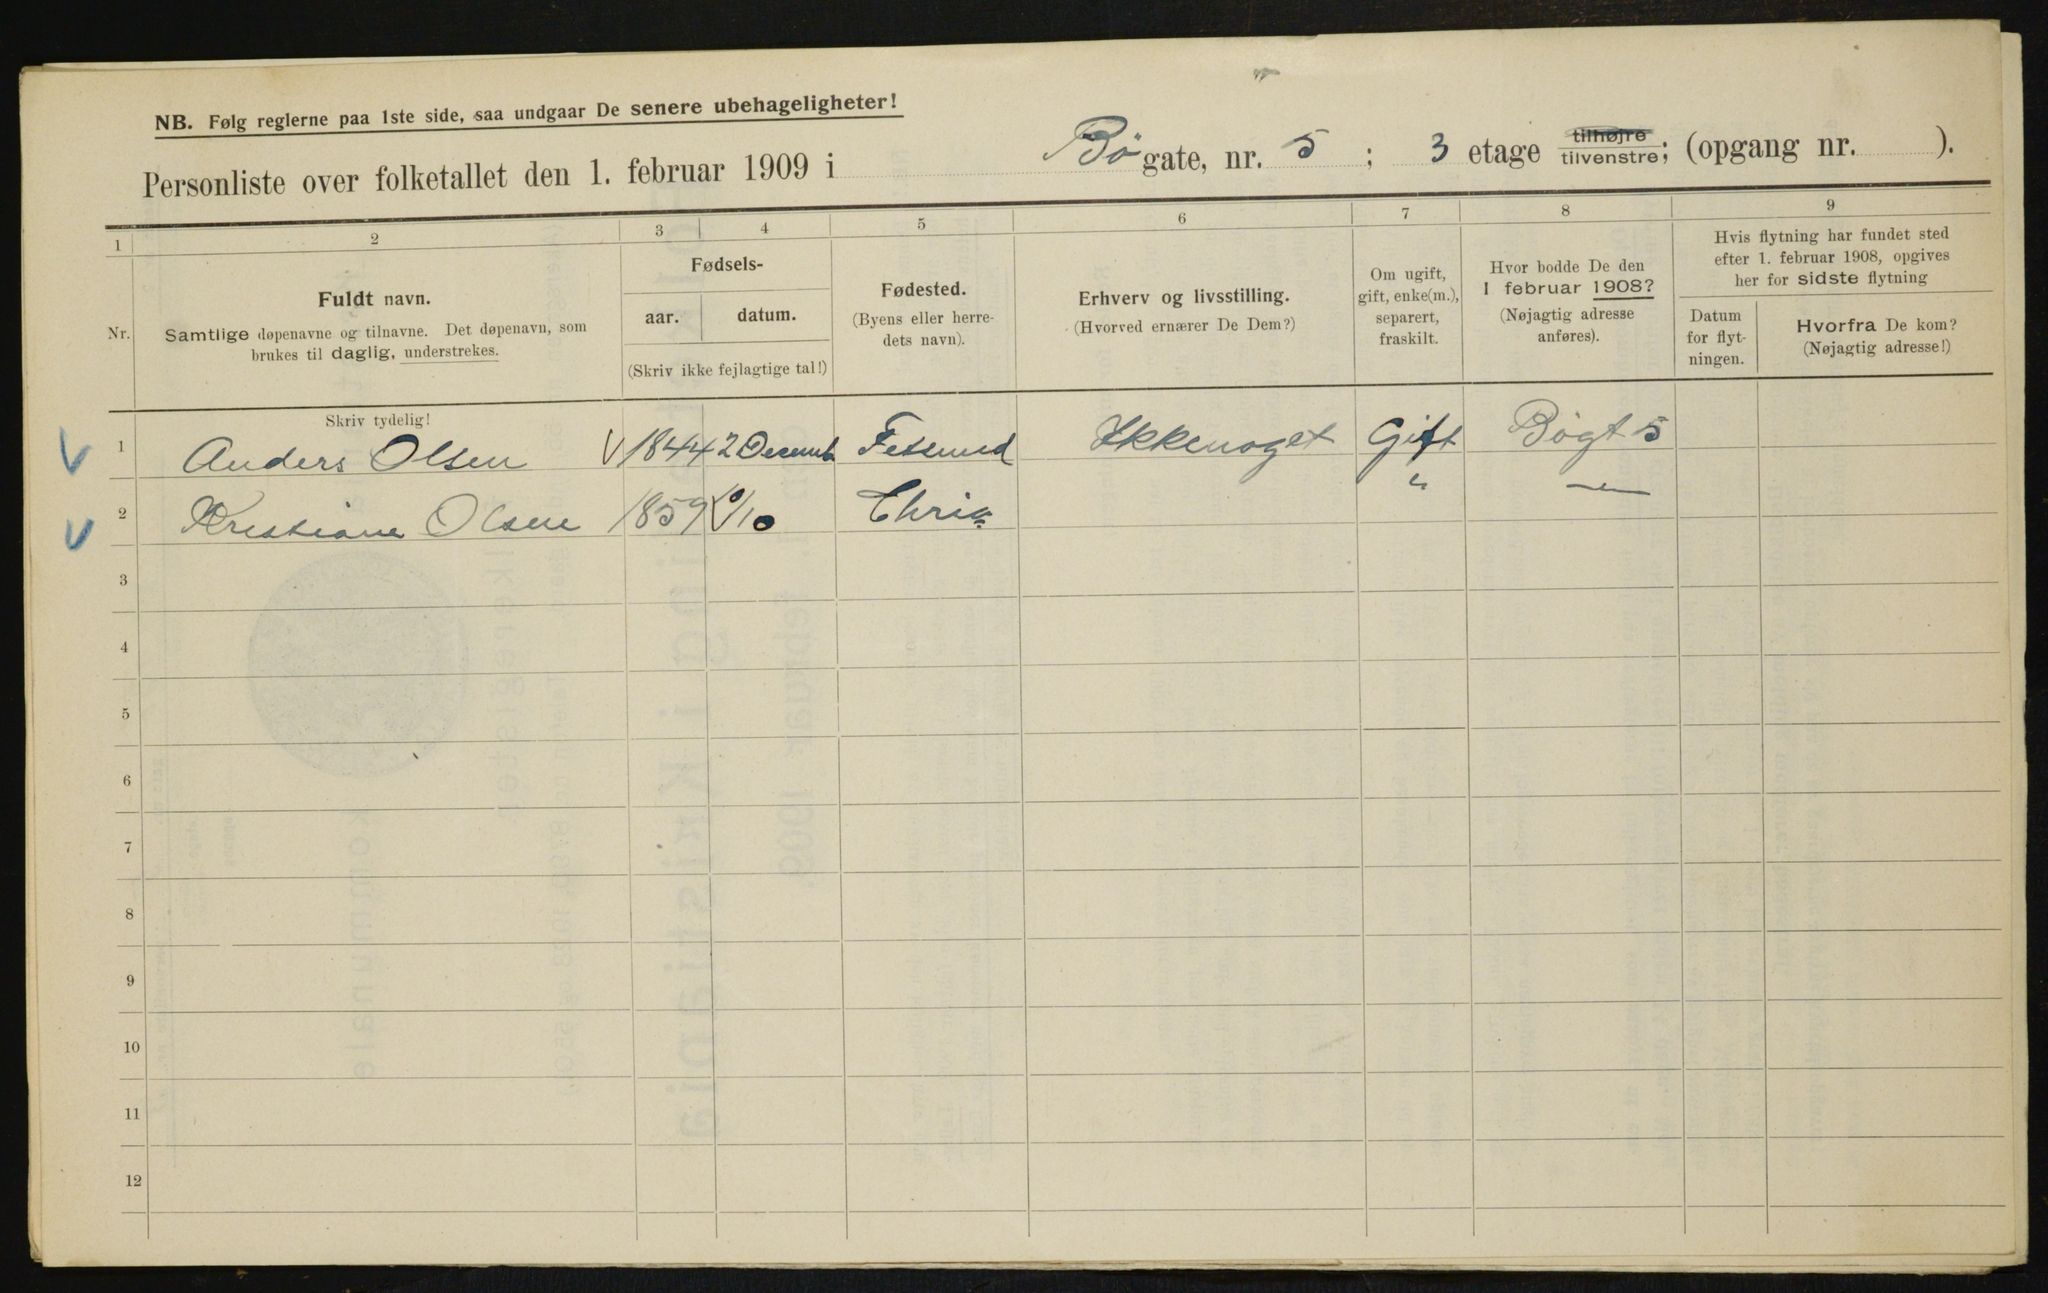 NB. Følg reglerne paa 1ste side, saa undgaar De senere ubehageligheter!
Personliste over folketallet den 1. februar 1909 i Bøgate, nr. 5; 3 etage tilhøjre tilvenstre; (opgang nr. ).
1 2 3 4 5 6 7 8 9
Nr.
Fuldt navn.
Samtlige døpenavne og tilnavne. Det døpenavn, som
brukes til daglig, understrekes.
Fødsels-
aar. datum.
(Skriv ikke fejlagtige tal!)
Fødested.
(Byens eller herre-
dets navn).
Erhverv og livsstilling.
(Hvorved ernærer De Dem?)
Om ugift,
gift, enke(m.),
separert,
fraskilt.
Hvor bodde De den
1 februar 1908?
(Nøjagtig adresse
anføres).
Hvis flytning har fundet sted
efter 1. februar 1908, opgives
her for sidste flytning
Datum
for flyt-
ningen.
Hvorfra De kom?
(Nøjagtig adresse!)
Skriv tydelig!
1 Anders Olsen 1844 2 Decemb Fetsund Ikkenoget Gift Bøgt 5
2 Kristiane Olsen 1859 /10 Chria " —"—
3
4
5
6
7
8
9
10
11
12